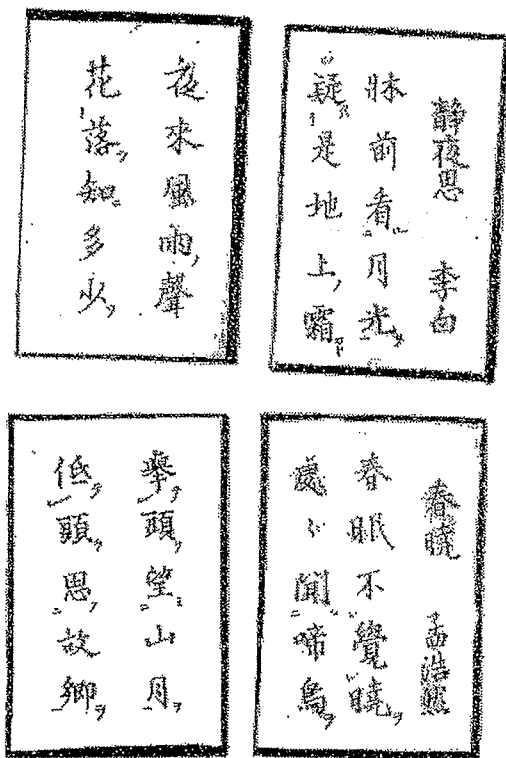 靜夜思 李白
牀前看月光
疑是地上霜
夜來風雨聲
花落知多少
春曉 孟浩然
春眠不覺曉
處〻聞啼鳥
擧頭望山月
低頭思故鄉